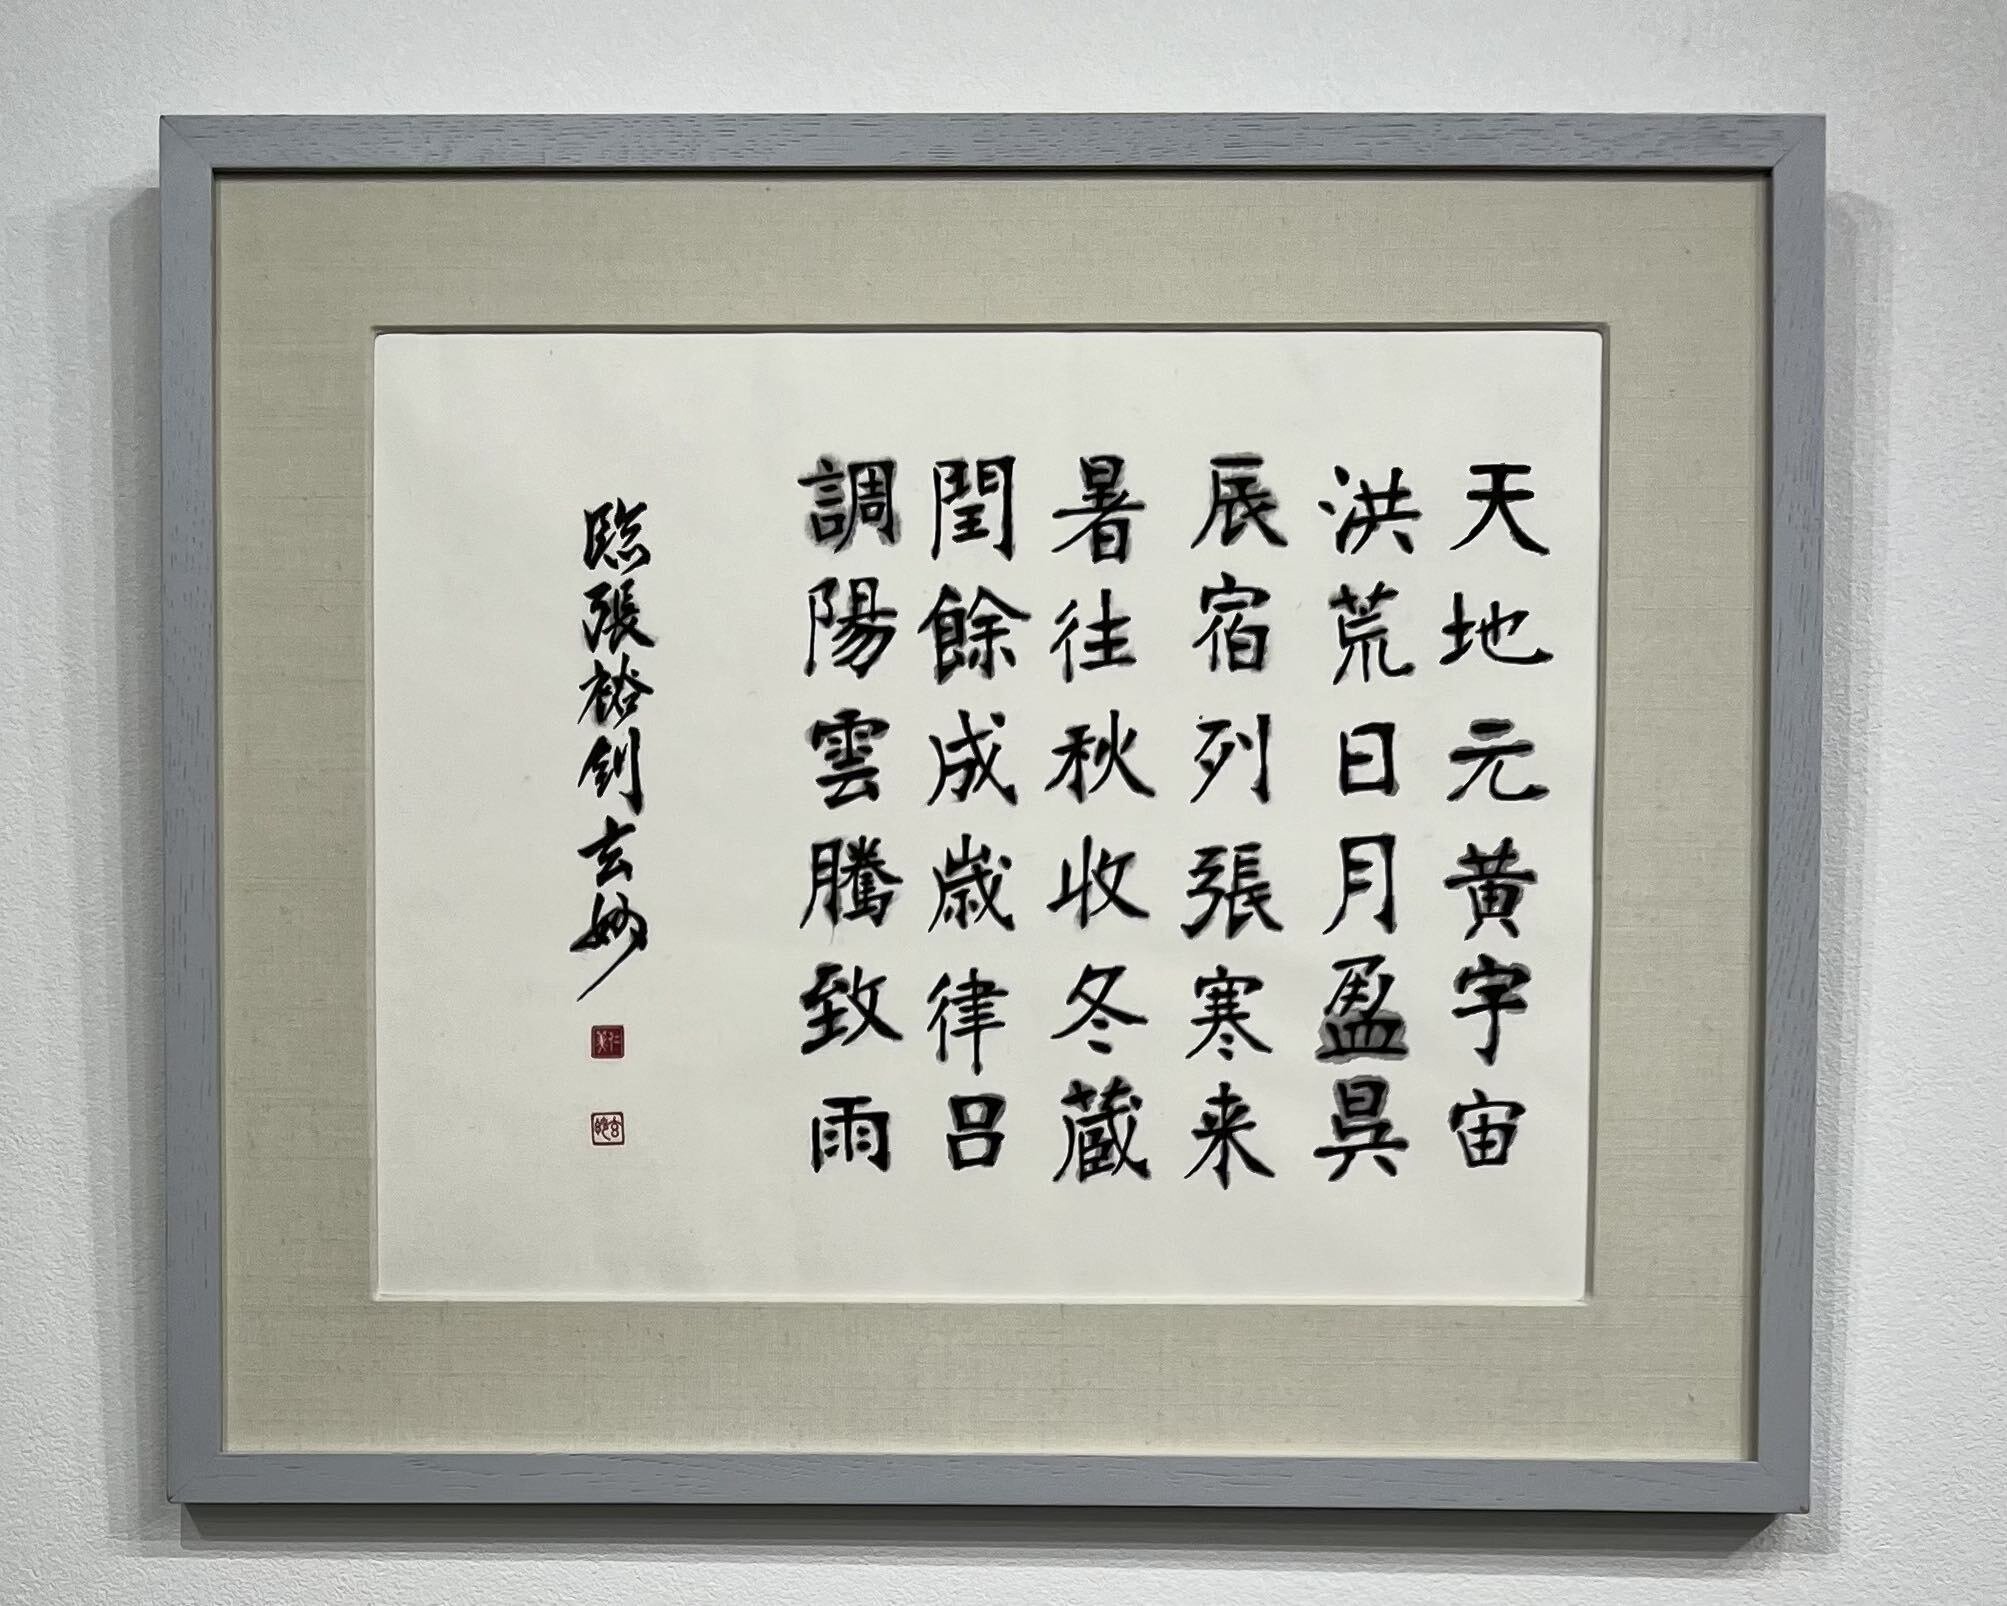 天地元黄宇宙
洪荒日月盈昃
辰宿列張寒来
暑往秋收冬蔵
閏餘成歲律吕
調陽雲騰致雨
臨張裕釗玄妙